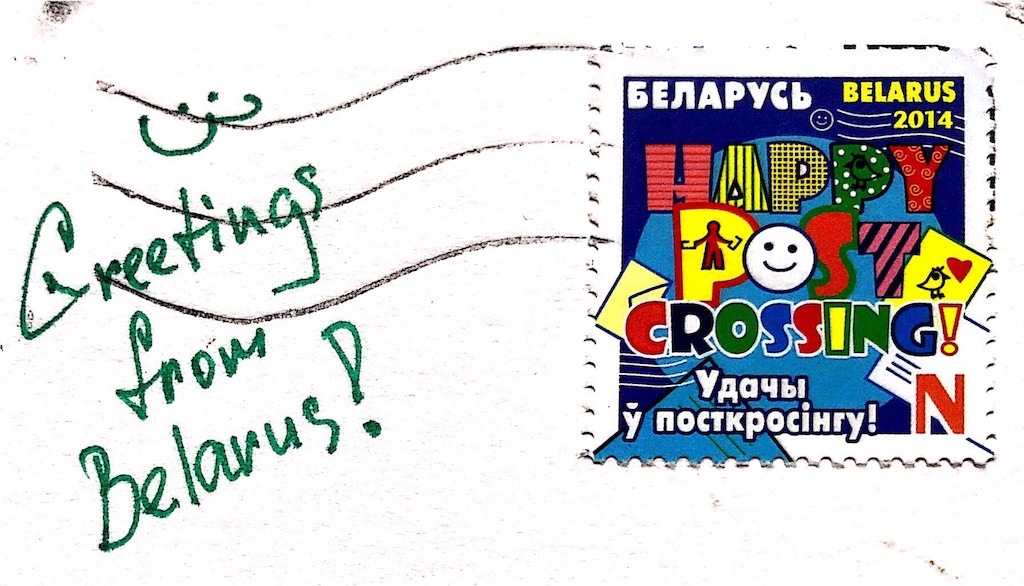 Greetings
from
Belarus!
БЕЛАРУСЬ BELARUS
2014
HAPPY
POST
CROSSING!
Удачы
ў посткросінгу!
N